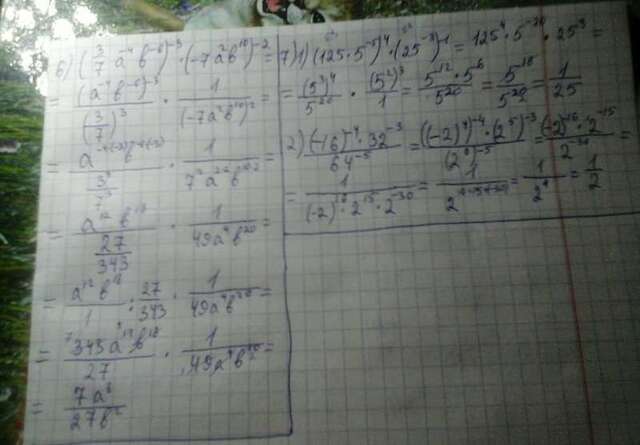 6) (3/7 a⁻⁴ b⁻⁶)⁻³ · (-7a²b¹⁰)⁻² =
= (a⁻⁴b⁻⁶)⁻³ / (3/7)³ · 1 / (-7a²b¹⁰)² =
= / 3³/7³ · 1 / =
= a¹²b¹⁸ / 27/343 · 1 / 49a⁴b²⁰ =
= a¹²b¹⁸ / 1 : 27/343 · 1 / 49a⁴b²⁰ =
= 343a¹²b¹⁸ / 27 · 1 / 49a⁴b²⁰ =
= 7a⁸ / 27b²
7) 1) (125·5⁻⁵)⁴ · (25⁻³)⁻¹ = 125⁴ · 5⁻²⁰ · 25³ =
= (5³)⁴ / 5²⁰ · (5²)³ / 1 = 5¹²·5⁶ / 5²⁰ = 5¹⁸ / 5²⁰ = 1/25
2) (-16)⁻⁴ · 32⁻³ / 64⁻⁵ = ((-2)⁴)⁻⁴ · (2⁵)⁻³ / (2⁶)⁻⁵ = (-2)⁻¹⁶ · 2⁻¹⁵ / 2⁻³⁰
= 1 / (-2)¹⁶ · 2¹⁵ · 2⁻³⁰ = 1 / = 1 / 2¹ = 1/2